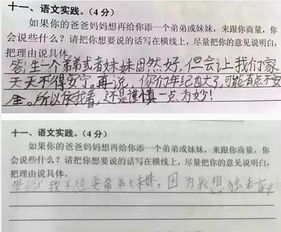 十一、语文实践。(4分)
如果你的爸爸妈妈想再给你添一个弟弟或妹妹,来跟你商量,你
会说些什么?请把你想要说的话写在横线上,尽量把你的意见说明白,
把理由说具体。
答:生一个弟弟或者妹妹固然好,但会让我们家
天天不得安宁。再说,你们年纪也大了,可能有点不安
全。所以依我看,还是谨慎一点为妙!
十一、语文实践。(4分)
如果你的爸爸妈妈想再给你添一个弟弟或妹妹,来跟你商量,你
会说些什么?请把你想要说的话写在横线上,尽量把你的意见说明白,
把理由说具体。
我不想要弟弟妹妹,因为我想独